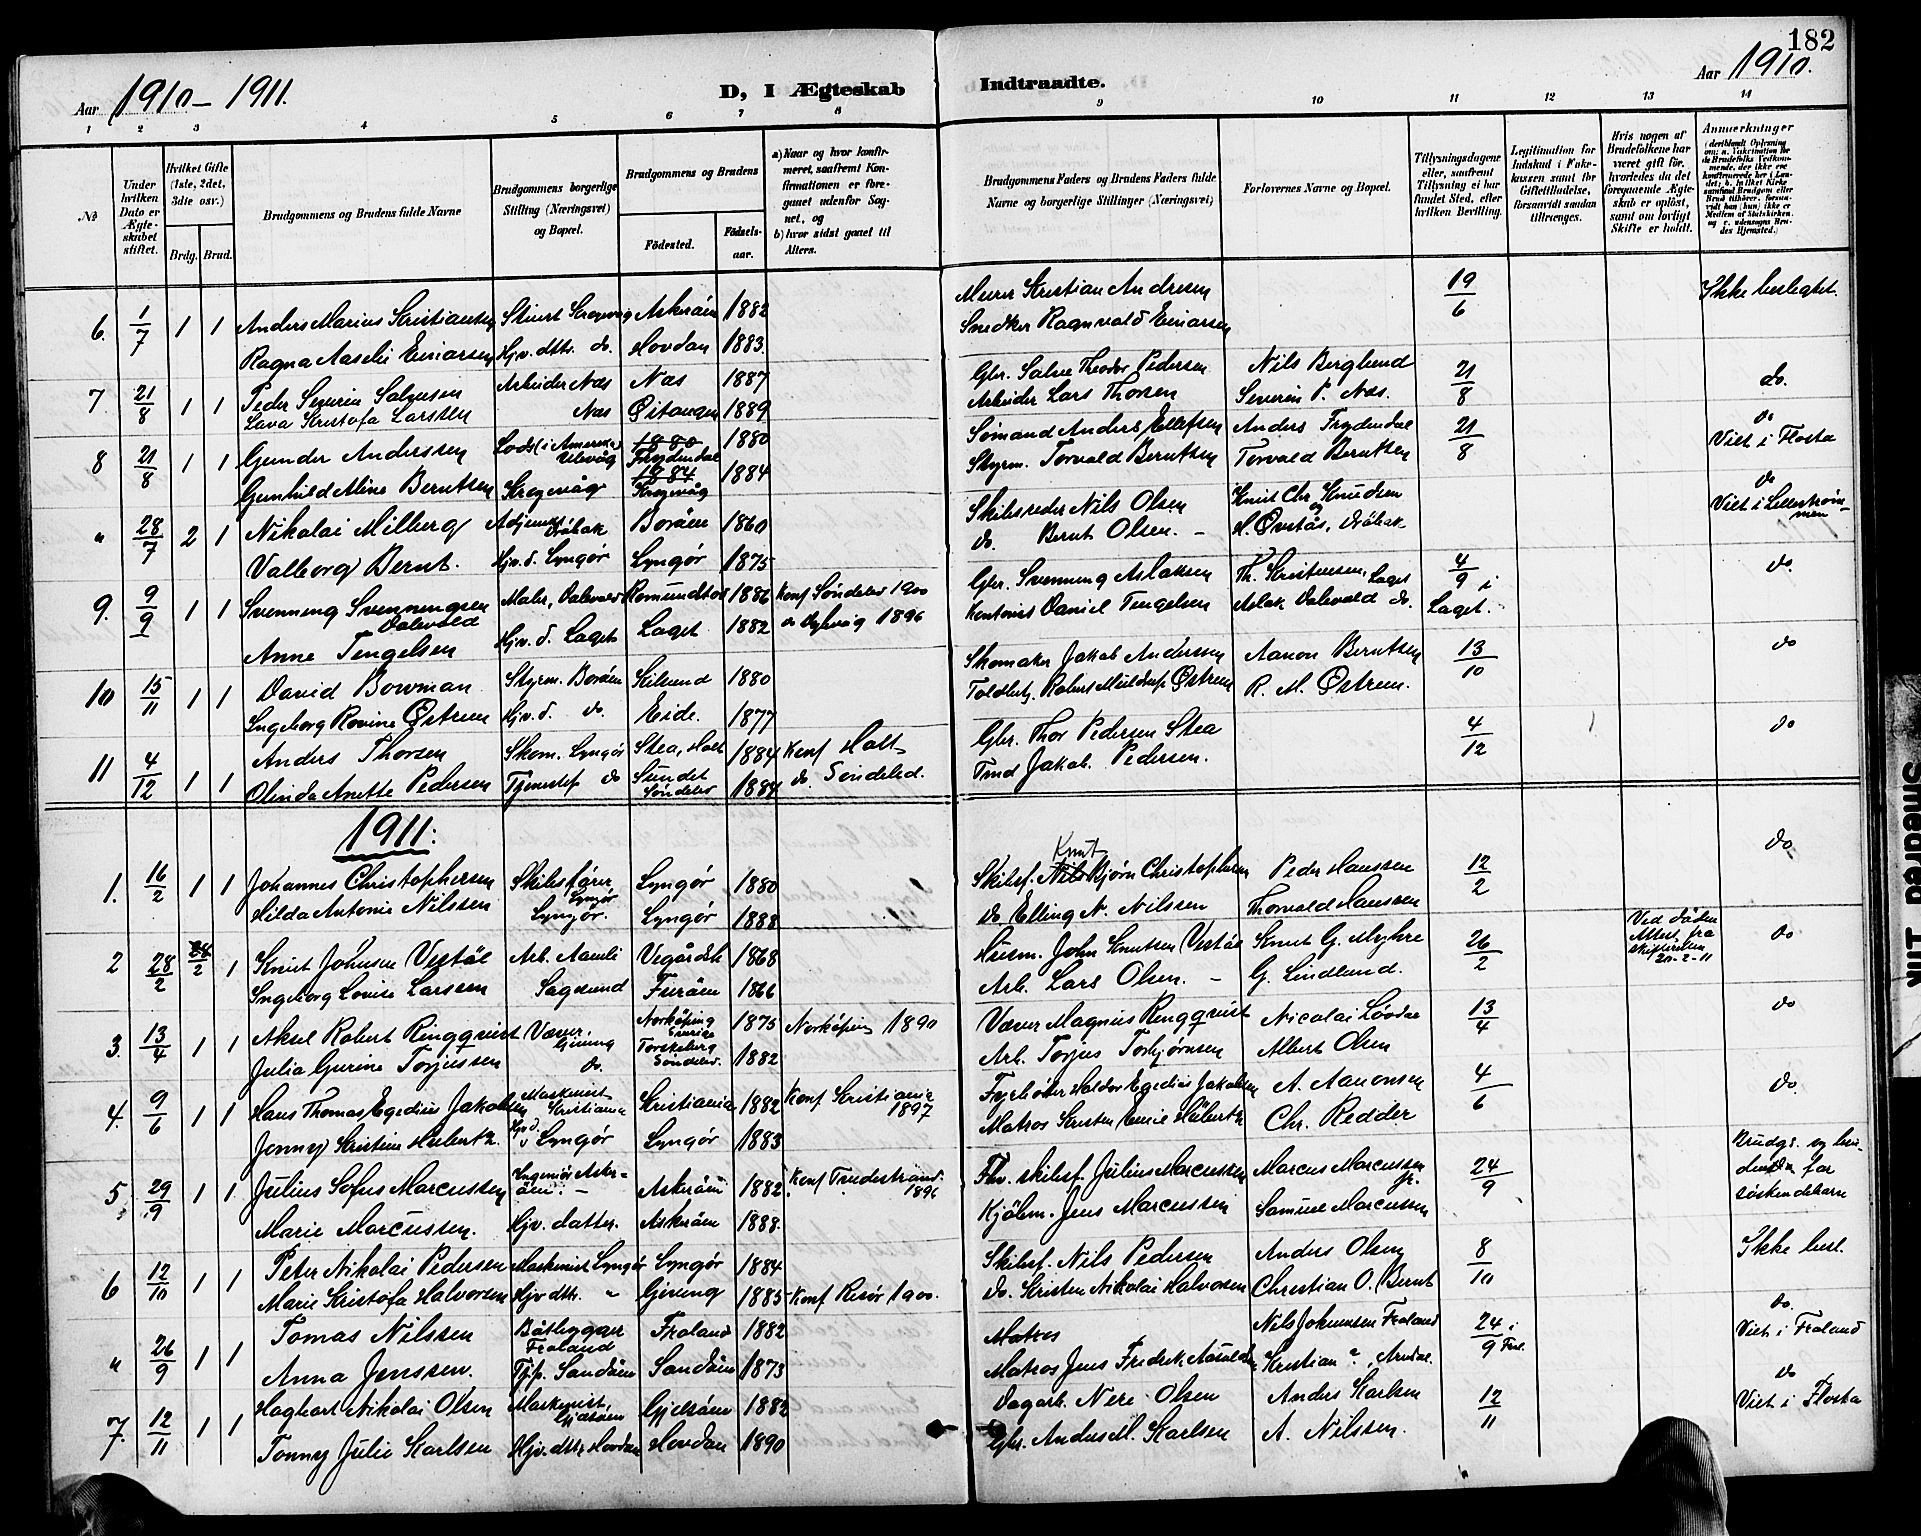 182
Aar 1910 – 1911.
D, I Ægteskab Indtraadte.
Aar 1910.
1 2 3 4 5 6 7 8 9 10 11 12 13 14
No
Under hvilken Dato er Ægteskabet stiftet.
Hvilket Gifte (1ste, 2det, 3dte osv.)
Brdg. Brud.
Brudgommens og Brudens fulde Navne
Brudgommens borgerlige Stilling (Næringsvei) og Bopæl.
Brudgommens og Brudens
Födested. Födselsaar.
a) Naar og hvor konfirmeret, saafremt Konfirmationen er foregaaet udenfor Sognet, og
b) hvor sidst gaaet til Alters.
Brudgommens Faders og Brudens Faders fulde Navne og borgerlige Stillinger (Næringsvei)
Forlovernes Navne og Bopæl.
Tillysningsdagene eller, saafremt Tillysning ei har fundet Sted, efter hvilken Bevilling.
Legitimation for Indskud i Enkekassen samt for Giftetilladelse, forsaavidt saadan tiltrænges.
Hvis nogen af Brudefolkene har været gift för, hvorledes da det foregaaende Ægteskab er oplöst, samt om lovligt Skifte er holdt.
Anmerkninger
6. 1/7 1 1 Anders Marius Kristiansen Askerøen 1882 Murer Kristian Andresen 19/6 Ikke beslegtet.
Ragna Aaselie Einarsen Hjv. dttr. do. Hovdan 1883. Snedker Ragnvald Einarsen
7. 21/8 1 1 Peder Severin Salvesen Arbeider Næs Næs 1887 Gbr. Salve Theodor Pedersen Nils Berglund 21/8 do.
Lava Kristofa Larssen Næs Østangen 1889 Arbeider Lars Thorsen Severin P. Næs.
8 21/8 1 1 Gunder Anderssen Lods (i Amerika) Ulevåg 1880 Frydendal 1880 Sømand Anders Ellefsen Anders Frydendal 21/8 do Viet i Flosta
Gunhild Aline Berntsen Krogevåg 1884 Krogevåg 1884 Styrm. Torvald Berntsen Torvald Berntsen
" 28/7 2 1 Nikolai Milberg Adjunkt Drøbak Borøen 1860 Skibsreder Nils Olsen Knut Chr. Knudsen og do
Valborg Bernt. Hjv. d. Lyngør Lyngør 1875 do. Bernt Olsen. – H. Øvstås, Drøbak
9. 9/9 1 1 Svenning Svenningsen Dalevold Maler, Dalevold 1886 Konf Søndeled 1900 Gbr. Svenning Aslaksen Th. Kristensen, Laget 4/9 i Laget. do.
Anne Tengelsen Hjv. d. Laget Laget 1882 do Dybvåg 1896 Daniel Tengelsen Aslak Dalevold do.
10 15/11 1 1 David Bowman Styrm. Borøen Kilsund 1880 Skomaker Jakob Anderssen Aanon Berntsen 13/10 do
Ingeborg Rovine Østrem Hjv. d. do. Eide. 1877 R. M. Østrem.
11 4/12 1 1 Anders Thorsen Skom. Lyngør Stea, Holt 1884 Konf Holt Gbr. Thor Pedersen Stea 4/12 do
Olinda Anette Pedersen do Sundet Søndeled 1884 do. Søndeled. Jakob Pedersen.
1911:
1. 16/2 1 1 Johannes Christophersen Skibsfører Lyngør Lyngør 1880 Skibsf. Nils Knut Bjørn Christophersen Peder Hanssen 12/2 do
Hilda Antonie Nilssen Lyngør. Lyngør 1888 do Elling N. Nilssen Thorvald Hanssen
2 28/2 1 Knut Johnsen Vestøl Arb. Aamli Vegårdsh 1868 Husm. John Knutsen Vestøl Knut G. Myhre 26/2 Ved døden Attest fra skifteretten 20-2-11 do
Ingeborg Lovise Larssen Sagesund Furøen 1866 Arb. Lars Olsen. – G. Lindlund.
3. 13/4 1 1 Aksel Robert Ringqvist Væver. Gjeving Norkøping 1875 Norkøping 1890 Væver Magnus Ringqvist Nicolai Løvdal 13/4 do
Julia Gurine Torjussen do. Torskeberg Søndeled. 1882 Arb. Torjus Torbjørnsen Albert Olsen
4. 9/6 1 1 Hans Thomas Egedius Jakobsen Maskinist Kristiania Kristiania 1882 Konf Kristiania 1897 Fyrbøter Haldor Egedius Jakobsen A. Aanonsen 4/6 do.
Jenny Kristine Hubertz. Hjv. d. Lyngør Lyngør 1883 Matros Kristen Emil Hübertz Chr. Redder
5 29/9 1 1. Julius Sofus Marcussen Ingeniør Askerøen: – Askerøen 1882 Konf Tvedestrand. 1896 Fhv. skibsf. Julius Marcussen Marcus Marcussen jr. 24/9
Marie Marcussen. Hjv. datter. Askerøen 1888. Kjøbm. Jens Marcussen Samuel Marcussen søskendebarn
6 12/10 1 1 Peter Nikolai Pedersen Maskinist Lyngør Lyngør 1884 Skibsf. Nils Pedersen Anders Olsen 8/10 Ikke besl.
Marie Kristofa Halvorsen Hjv dttr. " Gjeving 1885 Konf Risør 1900. do. Kristen Nikolai Halvorsen Christian O. Bernt
" 26/9 1 1 Tomas Nilssen Båtbygger Froland Froland 1882 Matros Nils Johannsen Froland 24/9 i Frol. do. Viet i Froland
Anna Jenssen. Tjp. Sandøen Sandøen 1873 Matros Jens Fredrik Kristian ", Arndal.
7. 12/11 1 1 Hagbart Nikolai Olsen Maskinist, Gjelsøen 1882 Dagarb. Nere Olsen Anders Karlsen 12/11 do Viet i Flosta
Tonny Julie Karlsen Hjv. dttr. Hovdan Hovdan 1890 Gbr. Anders M. Karlsen A. Nilssen.